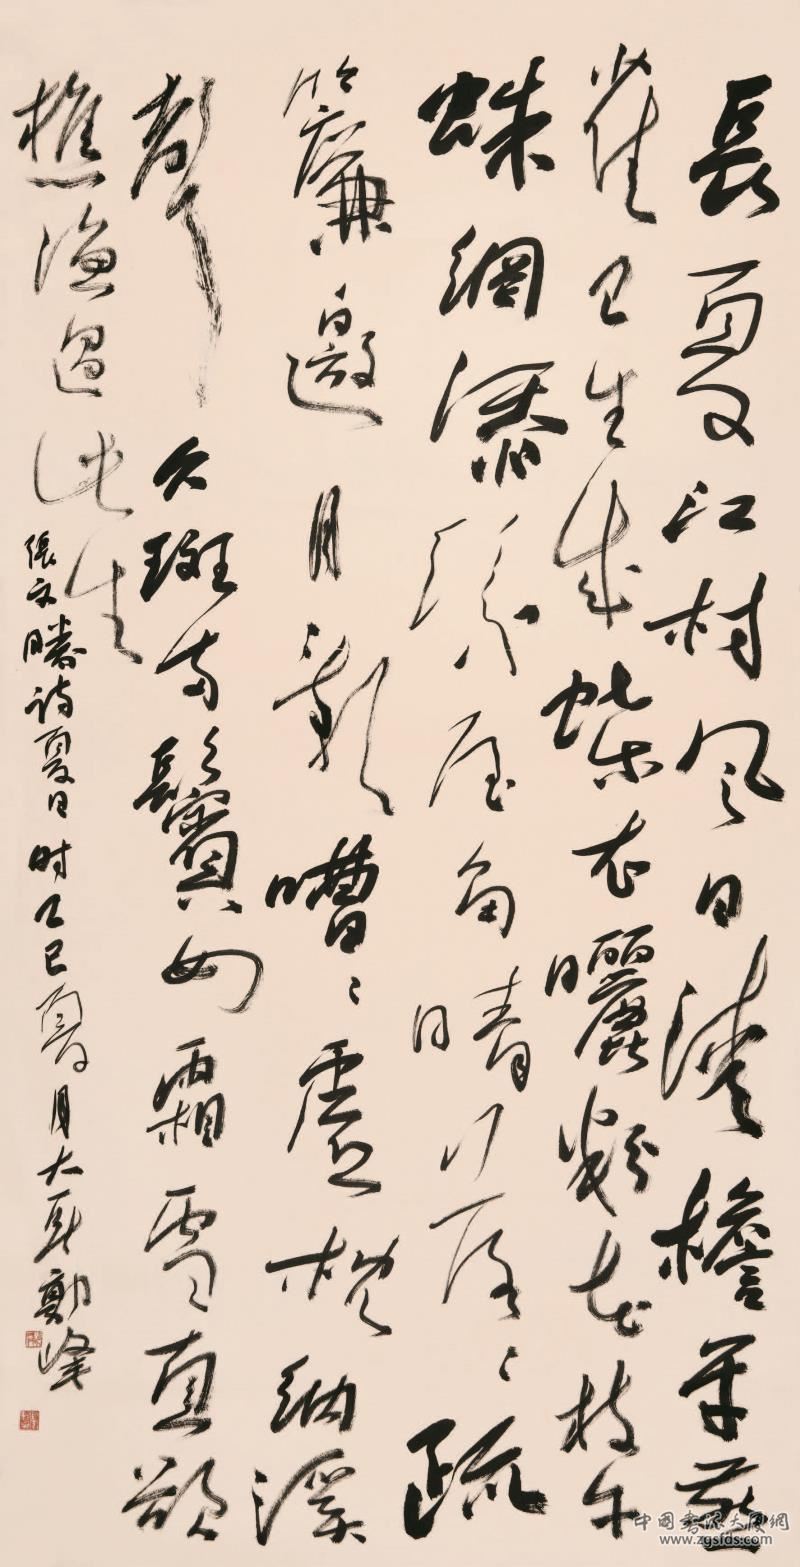 長夏江村风日清檐牙燕
雀已生成蝶衣曬粉花枝午
蛛網添絲屋角晴落々疏
簾邀月影嘈々虛枕納溪
聲久斑兩鬢如霜雪直欲
樵漁過此生
張文潛诗夏日时乙巳夏月大耳鄭峰
中國書法大厦網
www.zgsfds.com